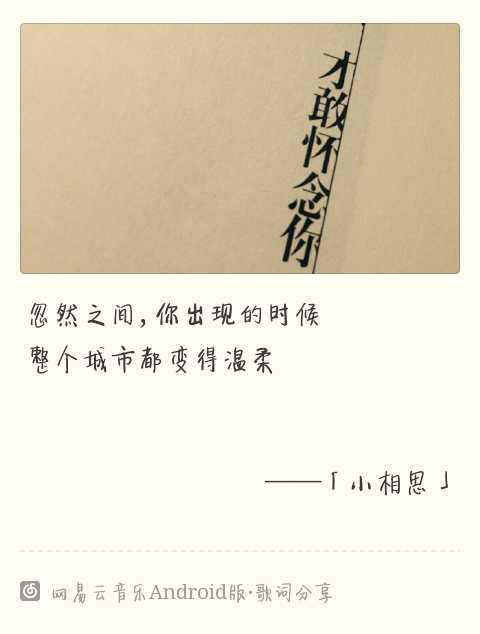 才敢怀念你
忽然之间,你出现的时候
整个城市都变得温柔
——「小相思」
网易云音乐Android版·歌词分享